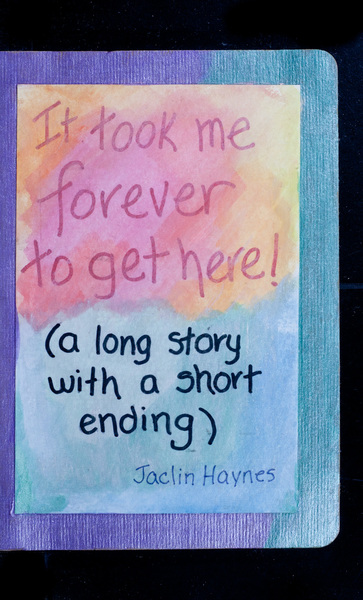 It took me
forever
to get here!
(a long story
with a short
ending)
Jaclin Haynes